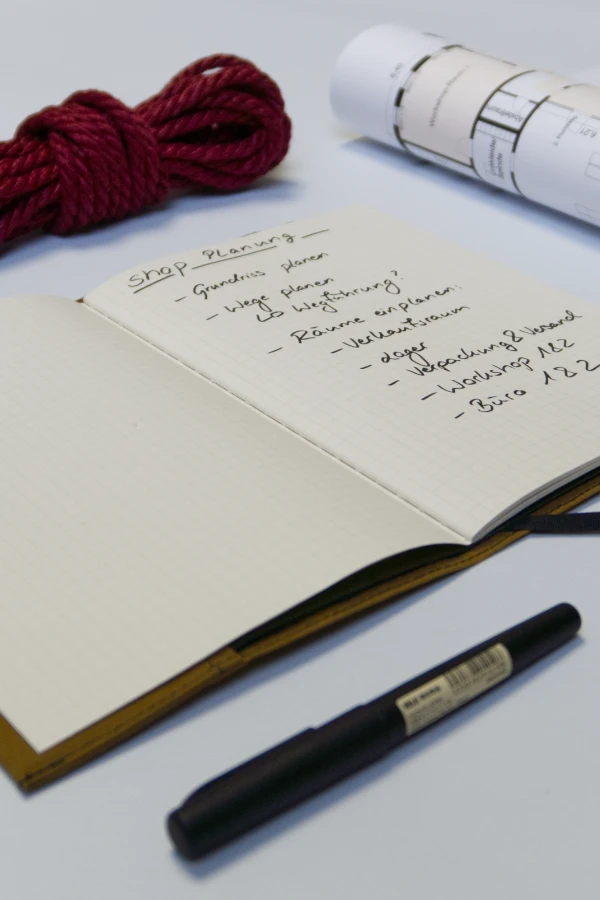 Shop Planung
- Grundriss planen
- Wege planen
↳ Wegführung?
- Räume einplanen:
- Verkaufsraum
- Lager
- Verpackung & Versand
- Workshop 1&2
- Büro 1&2